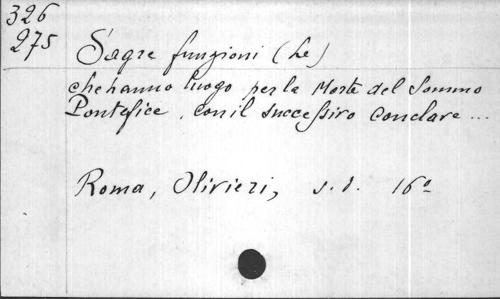 326
275
Sagre funzioni (Le)
che hanno luogo per la Morte del Sommo
Pontefice, con il successivo Conclave...
Roma, Olivieri, s.d. 16°